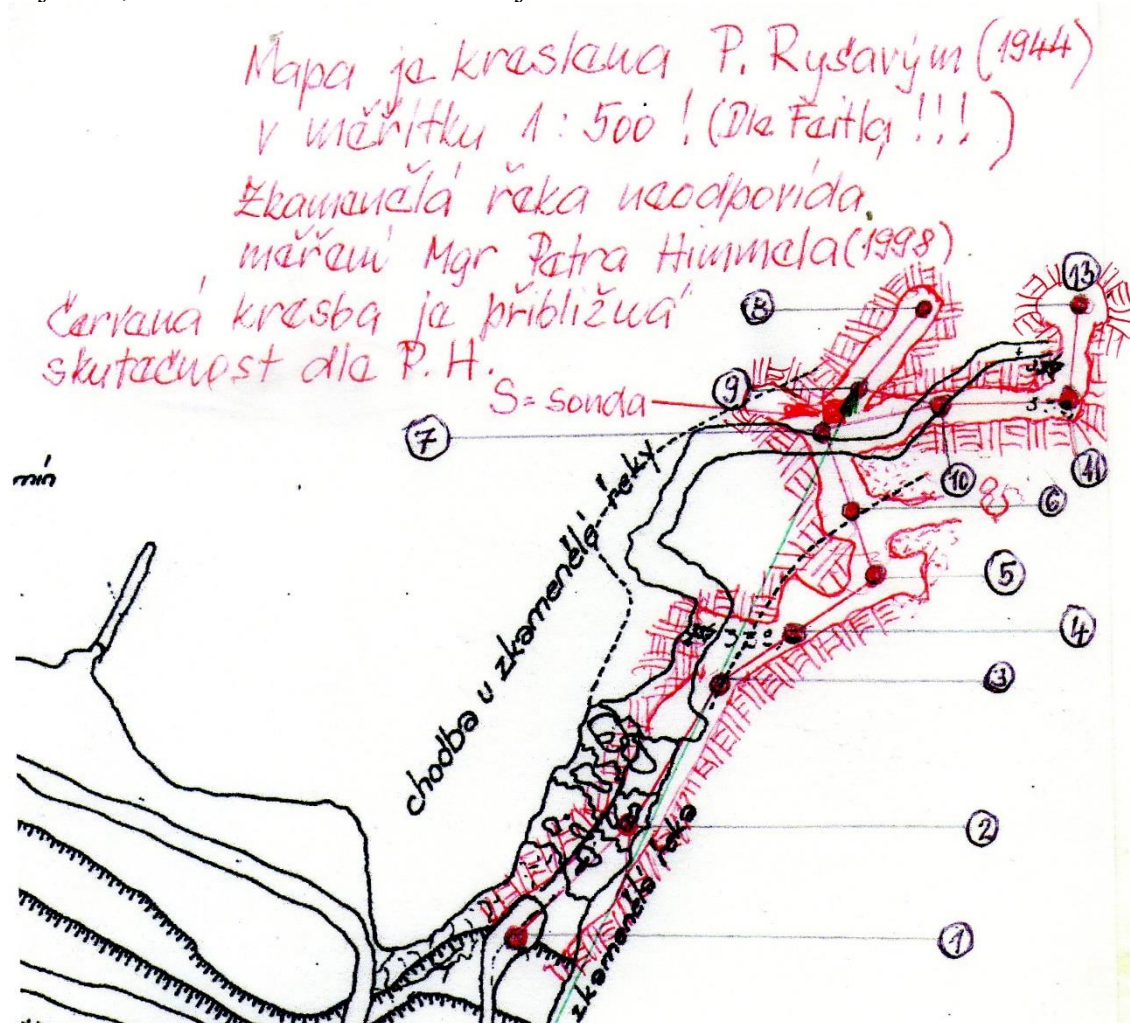 Mapa je kreslena P. Ryšavým (1944)
v měřítku 1 : 500 ! (Dle Feitla !!!)
Zkamenělá řeka neodpovídá
měření Mgr Petra Himmela (1998)
Červená kresba je přibližná
skutečnost dle P. H.
S = sonda
8
13
9
7
mín
10
11
6
5
4
chodba u zkamenělé řeky
3
2
zkamenělá řeka
1